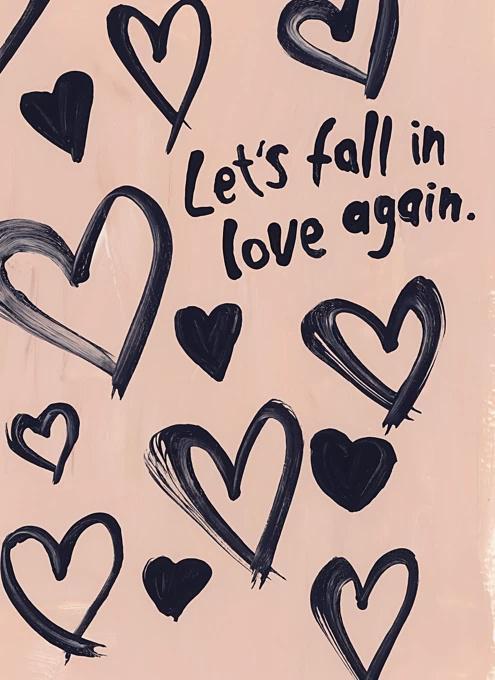 Let's fall in
love again.